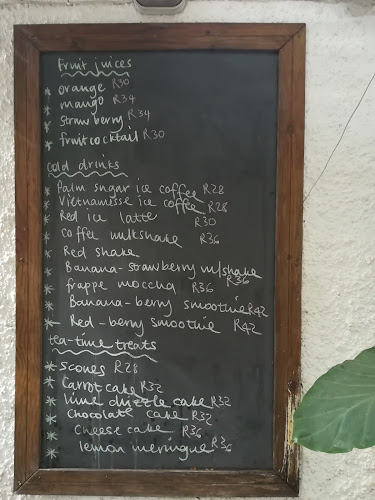 Fruit juices
* orange R30
* mango R34
* strawberry R34
* fruitcocktail R30
Cold drinks
* Palm sugar ice coffee R28
* Vietnamesse ice coffee R28
* Red ice latte R30
* coffee milkshake R36
* Red shake
* Banana-strawberry m/shake R36
* frappe moccha R36
* Banana-berry smoothie R42
* Red-berry smoothie R42
tea-time treats
* Scones R28
* Carrot cake R32
* lime drizzle cake R32
* Chocolate cake R32
* Cheese cake R36
* lemon meringue R36